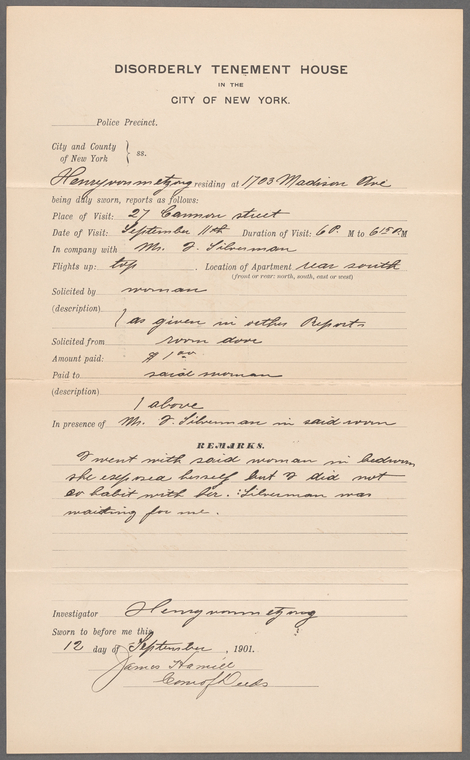 DISORDERLY TENEMENT HOUSE
IN THE
CITY OF NEW YORK.
Police Precinct.
City and County
of New York } ss.
Henry von metzing residing at 1703 Madison Ave
being duly sworn, reports as follows:
Place of Visit: 27 Cannon street
Date of Visit: September 11th Duration of Visit: 6 P. M to 6 15 P. M
In company with Mr. J Silverman
Flights up: top . Location of Apartment rear south
(front or rear: north, south, east or west)
Solicited by woman
(description)
( as given in other Reports
Solicited from room door
Amount paid: $ 1 00
Paid to said woman
(description)
) above
In presence of Mr. J Silverman in said room
REMARKS.
I went with said woman in bedroom
she exposed herself but I did not
co habit with her. Silverman was
waiting for me.
Investigator Henry von metzing
Sworn to before me this
12 day of September , 1901.
James Hamill
Com of Deeds